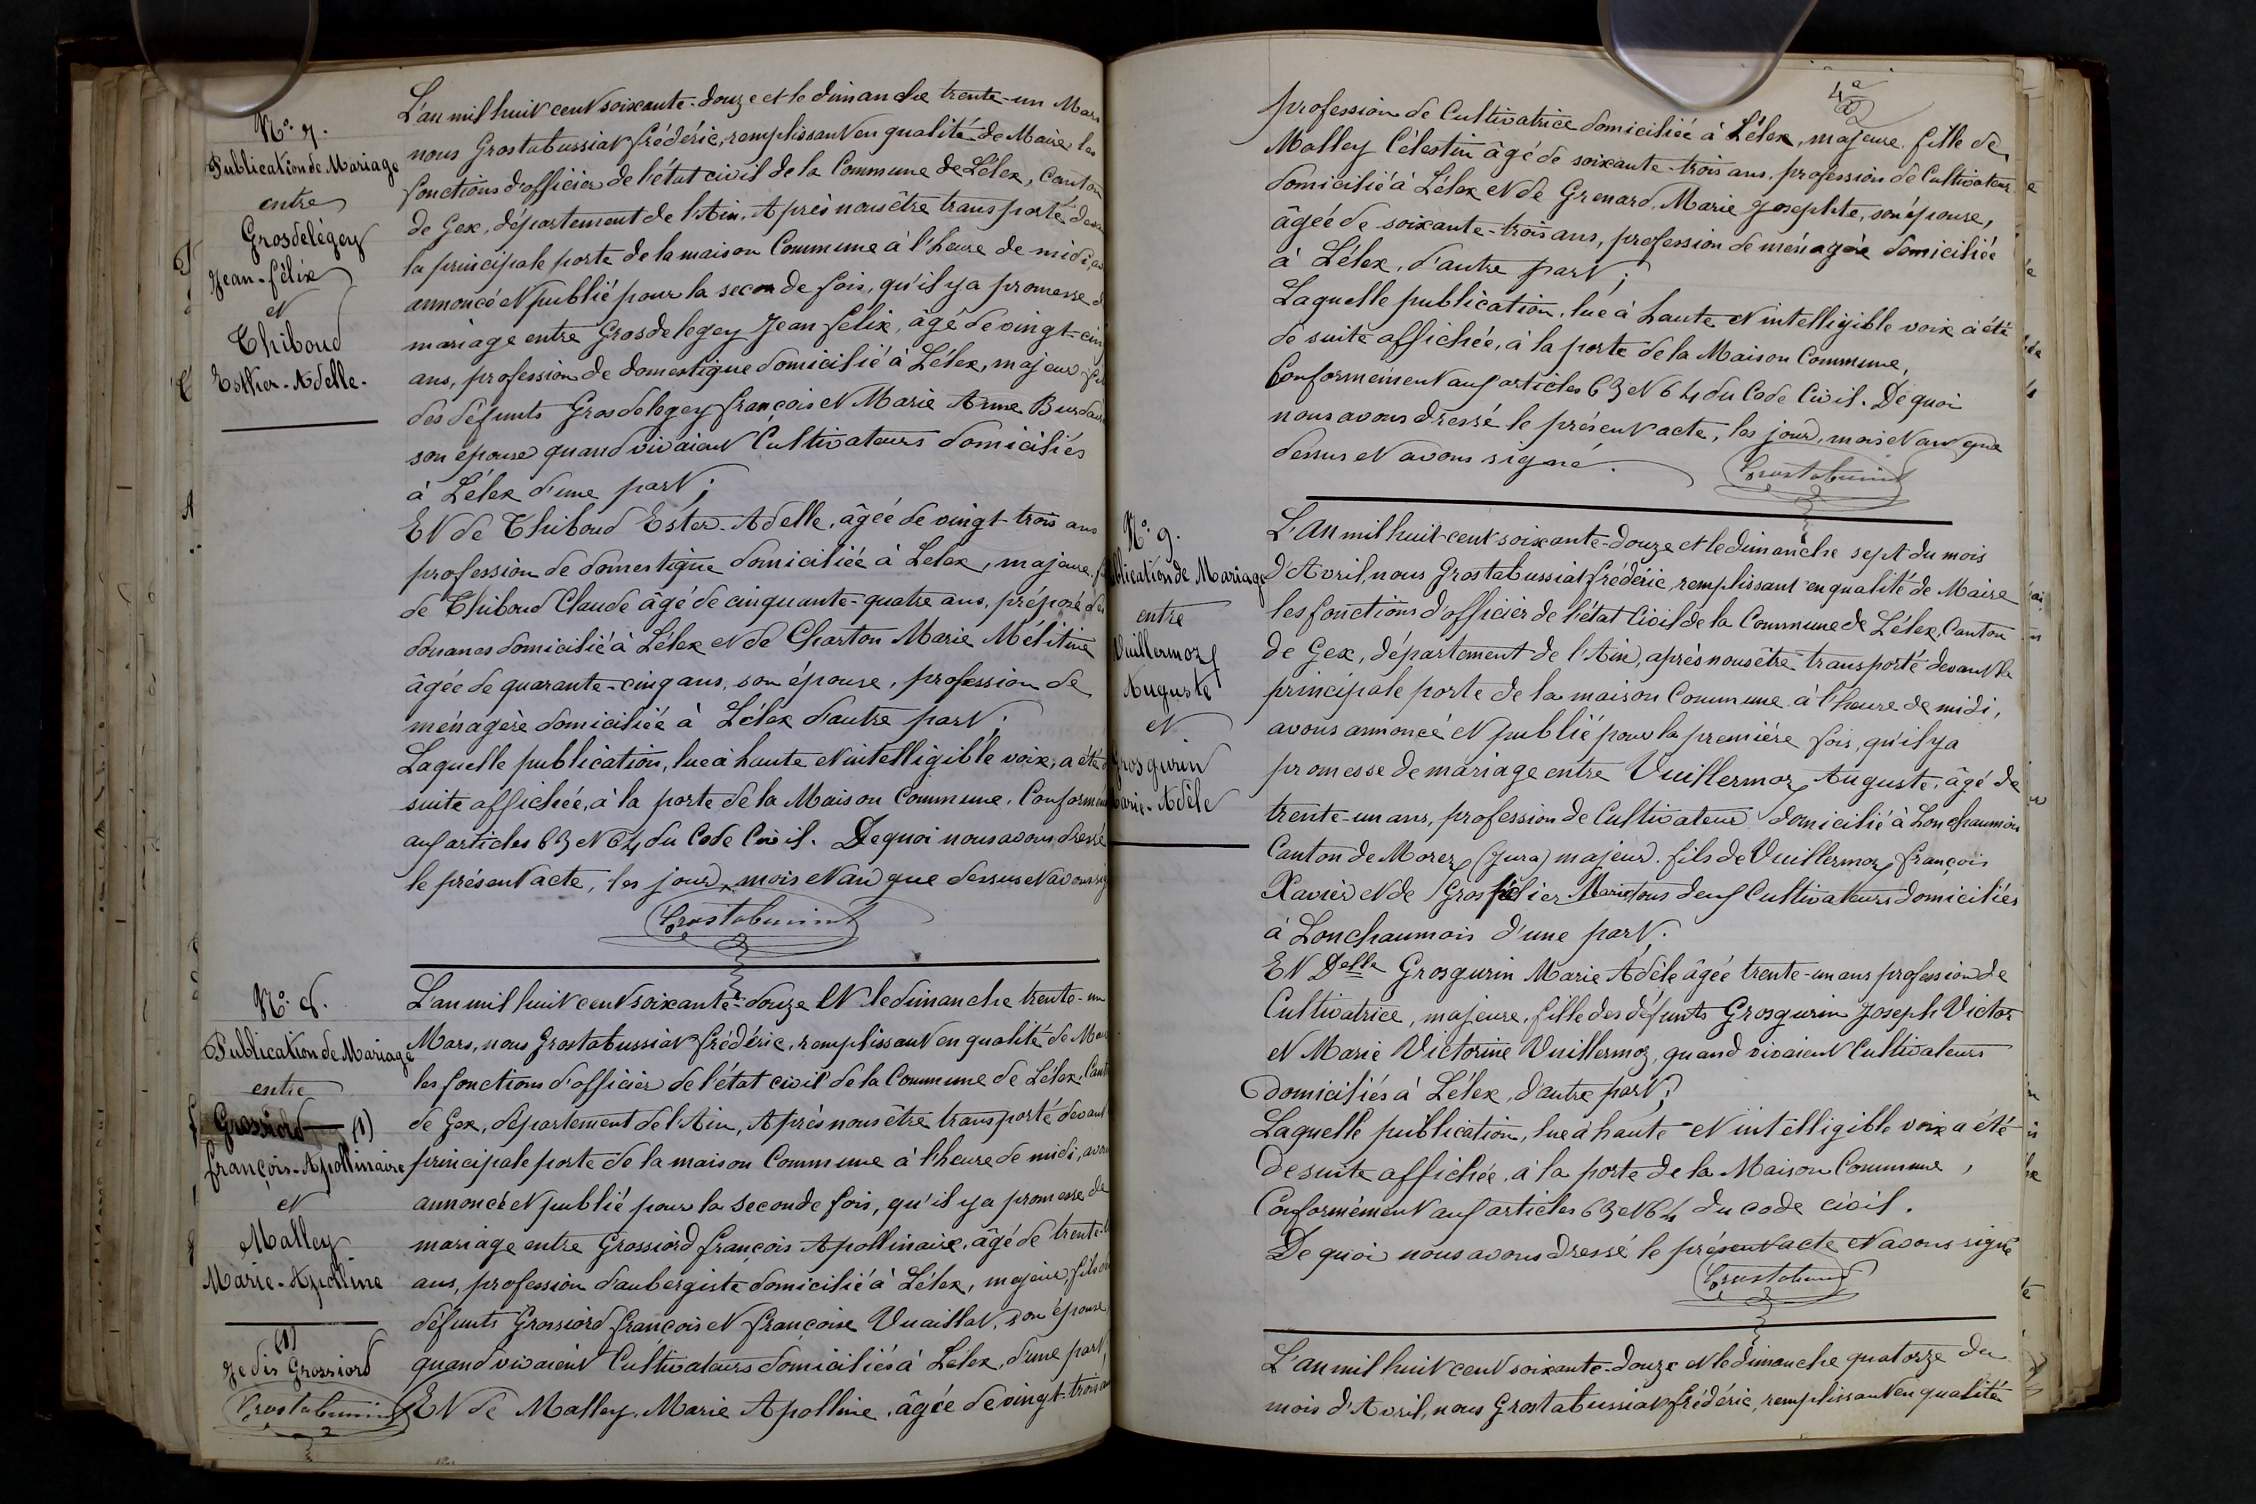 N.º 7.
Publication de Mariage
entre
Grosdelégey
Jean-félix
et
Thiboud
Esther-Adelle.
L'an mil huit cent soixante-douze et le dimanche trente-un Mars
nous Grostabussiat frédéric, remplissant en qualité de Maire, les
fonctions d'officier de l'état civil de la Commune de Lélex, Canton
de Gex, département de l'Ain, Après nous être transporté devant
la principale porte de la maison Commune à l'heure de midi,
annoncé et publié pour la seconde fois, qu'il y a promesse
mariage entre Grosdelegey Jean felix, âgé de vingt-cinq
ans, profession de domestique domicilié à Lélex, majeur, fils
des défunts Grosdelegey françois et Marie Anne
son épouse quand vivaient Cultivateurs domiciliés
à Lélex d'une part;
Et de Thiboud Ester-Adelle, âgée de vingt-trois ans
profession de domestique domiciliée à Lelex, majeure,
de Thiboud Claude âgé de cinquante-quatre ans, préposé des
douanes domicilié à Lélex et de Charton Marie Mélitine
âgée de quarante-cinq ans, son épouse, profession de
ménagère domiciliée à Lélex d'autre part;
Laquelle publication, lue à haute et intelligible voix, a été
suite affichée, à la porte de la Maison Commune, Conformément
aux articles 63 et 64 du Code Civil. De quoi nous avons dressé
le présent acte, les jour, mois et an que dessus et avons sig
N.º 8.
Publication de Mariage
entre
Grossiord (1)
françois-Apollinaire
et
Malley
Marie-Apolline
(1)
Je dis Grossiord
L'an mil huit cent soixante-douze et le dimanche trente-un
Mars, nous Grostabussiat frédéric, remplissant en qualité de Maire
les fonctions d'officier de l'état civil de la Commune de Lélex, Canton
de Gex, département de l'Ain, Après nous être transporté devant
principale porte de la maison Commune à l'heure de midi, avons
annoncé et publié pour la seconde fois, qu'il y a promesse de
mariage entre Grossiord françois Apollinaire, âgé de trente
ans, profession d'aubergiste domicilié à Lélex, majeur, fils
défunts Grossiord françois et françoise Vuaillat, son épouse
quand vivaient Cultivateurs domiciliés à Lélex, d'une part,
Et de Malley, Marie Apolline, âgée de vingt-trois ans
profession de Cultivatrice domiciliée à Lélex, majeure, fille de
Malley Célestin âgé de soixante-trois ans, profession de Cultivateur
domicilié à Lélex et de Grenard, Marie Josephte, son épouse,
âgée de soixante-trois ans, profession de ménagère domiciliée
à Lélex, d'autre part;
Laquelle publication, lue à haute et intelligible voix a été
de suite affichée, à la porte de la Maison Commune,
Conformément aux articles 63 et 64 du Code Civil. De quoi
nous avons dressé le présent acte, les jour, mois et an que
dessus et avons signé.
N.º 9.
blication de Mariage
entre
Vuillermoz
Auguste
et
Grosgurin
Marie-Adèle
L'An mil huit cent soixante-douze et le dimanche sept du mois
d'Avril, nous Grostabussiat frédéric, remplissant en qualité de Maire
les fonctions d'officier de l'état Civil de la Commune de Lélex, Canton
de Gex, département de l'Ain, après nous être transporté devant la
principale porte de la maison Commune à l'heure de midi,
avons annoncé et publié pour la première fois, qu'il y a
promesse de mariage entre Vuillermoz Auguste, âgé de
trente-un ans, profession de Cultivateur domicilié à Lonchaumois
Canton de Morez (Jura) majeur, fils de Vuillermoz françois
Xavier et de Grosfilier Marie tous deux Cultivateurs domiciliés
à Lonchaumois d'une part.
Et Delle Grosgurin Marie Adèle âgée trente-un ans profession de
Cultivatrice, majeure, fille des défunts Grosgurin Joseph Victor
et Marie Victorine Vuillermoz, quand vivaient Cultivateurs
domiciliés à Lélex, d'autre part;
Laquelle publication, lue à haute et intelligible voix a été
de suite affichée, à la porte de la Maison Commune,
Conformément aux articles 63 et 64 du code civil.
De quoi nous avons dressé le présent acte et avons signé
L'an mil huit cent soixante-douze et le dimanche quatorze du
mois d'Avril, nous Grostabussiat frédéric, remplissant en qualité